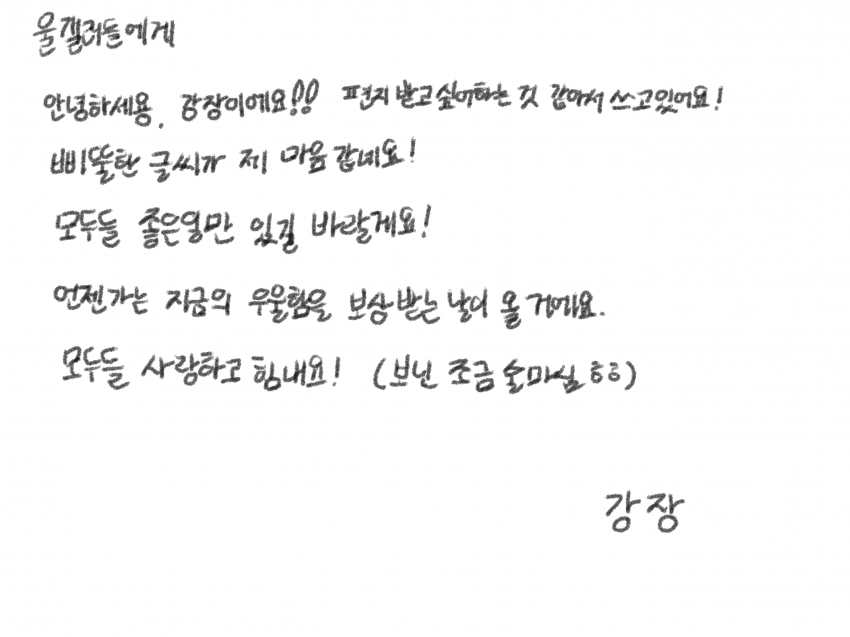 울갤러들에게
안녕하세용, 강장이에요!! 편지 받고싶어하는 것 같아서 쓰고있어요!
삐뚤한 글씨가 제 마음같네요!
모두들 좋은일만 있길 바랄게요!
언젠가는 지금의 우울함을 보상받는 날이 올거에요.
모두들 사랑하고 힘내요! (보닌 조금 술마실 ㅎㅎ)
강장